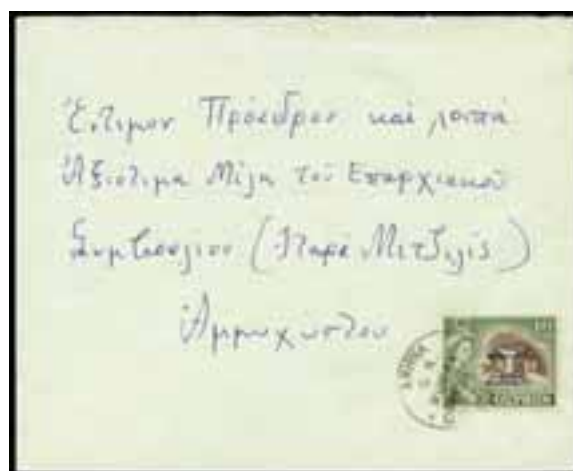 Ἔντιμον Πρόεδρον καὶ λοιπά
Ἀξιότιμα Μέλη τοῦ Επαρχιακοῦ
Συμβουλίου (Μετζιλίς)
Ἀμμοχώστου